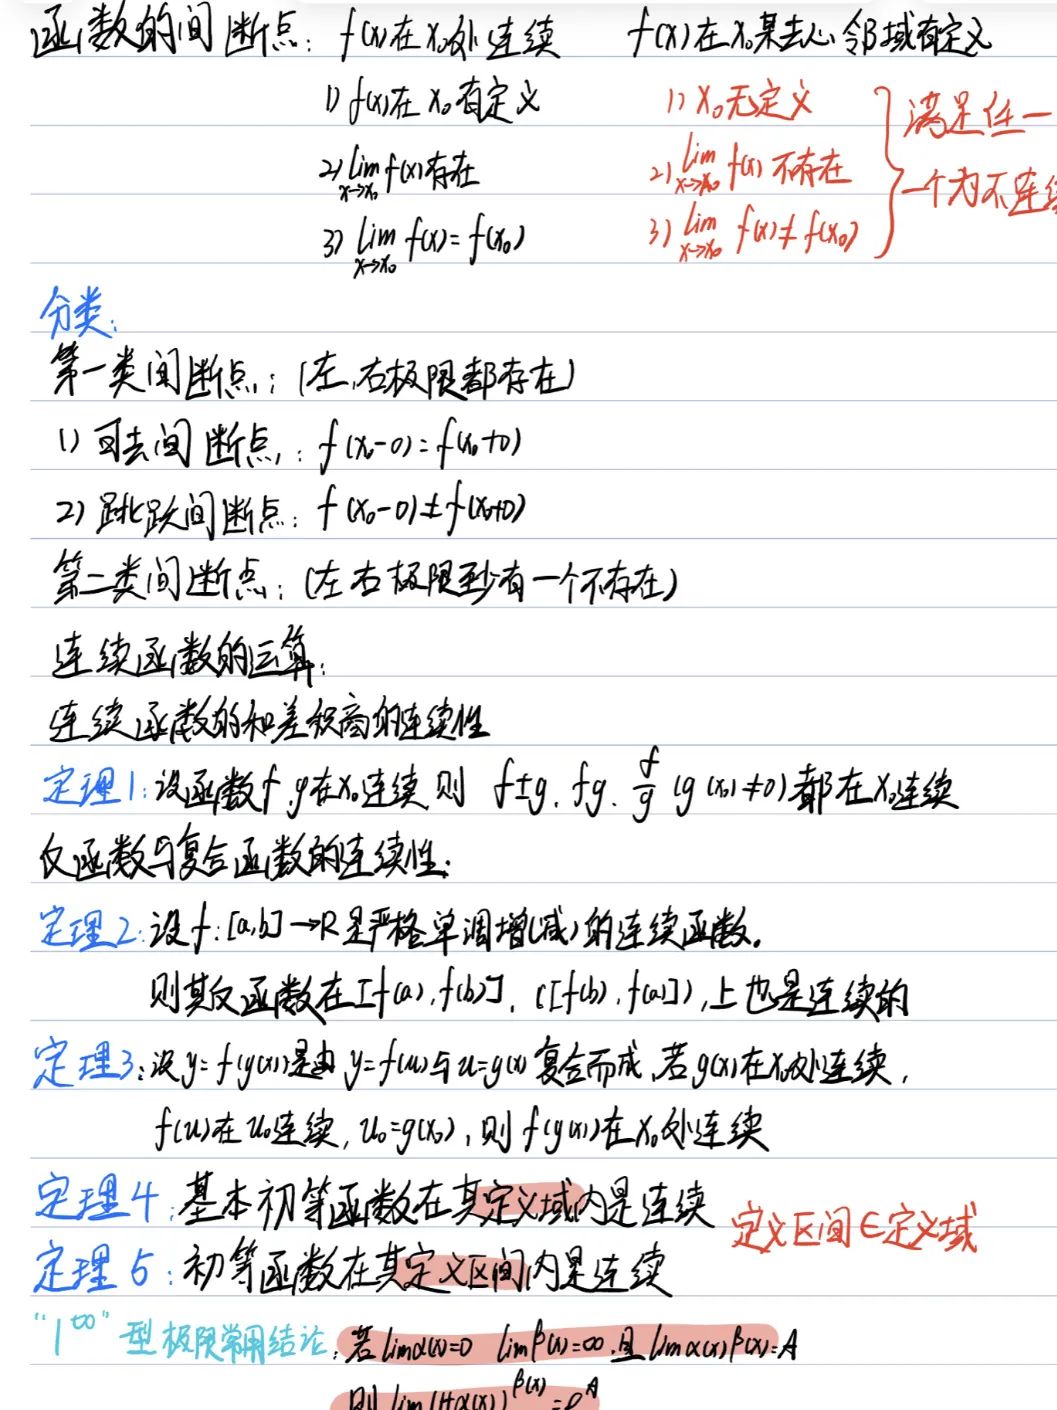 函数的间断点: f(x)在x₀处连续 f(x)在x₀某去心邻域有定义
1) f(x)在x₀有定义 1) x₀无定义
2) lim_{x→x₀} f(x)存在 2) lim_{x→x₀} f(x)不存在
3) lim_{x→x₀} f(x)=f(x₀) 3) lim_{x→x₀} f(x)≠f(x₀)
满足任一
一个为不连续
分类:
第一类间断点: (左,右极限都存在)
1) 可去间断点: f(x₀-0)=f(x₀+0)
2) 跳跃间断点: f(x₀-0)≠f(x₀+0)
第二类间断点: (左右极限至少有一个不存在)
连续函数的运算:
连续函数的和差积商的连续性
定理1: 设函数f,g在x₀连续 则 f±g, fg, f/g (g(x₀)≠0) 都在x₀连续
反函数与复合函数的连续性:
定理2: 设f:[a,b]→R是严格单调增(减)的连续函数.
则其反函数在[f(a),f(b)], ([f(b),f(a)]),上也是连续的
定理3: 设y=f(g(x))是由y=f(u)与u=g(x)复合而成,若g(x)在x₀处连续,
f(u)在u₀连续, u₀=g(x₀), 则f(g(x))在x₀处连续
定理4: 基本初等函数在其定义域内是连续
定义区间∈定义域
定理5: 初等函数在其定义区间内是连续
"1^∞"型极限常用结论: 若limα(x)=0 limβ(x)=∞.且limα(x)β(x)=A
则lim(1+α(x))^β(x)=e^A